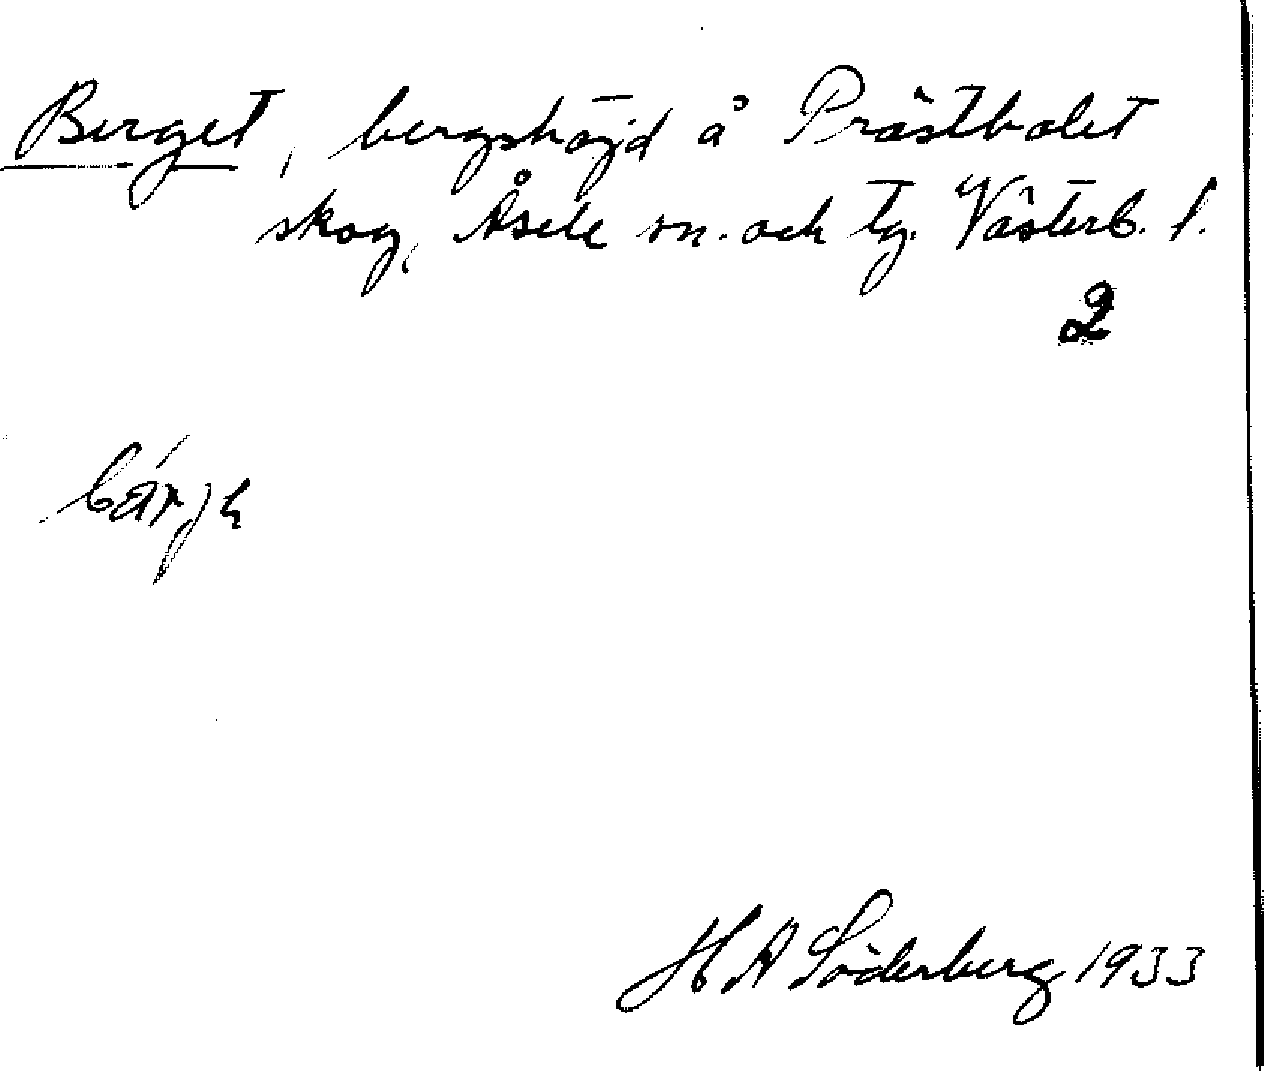 Berget, bergshöjd å Prästbolet
skog, Åsele sn. och tg. Västerb. l.
2
H A Söderberg 1933